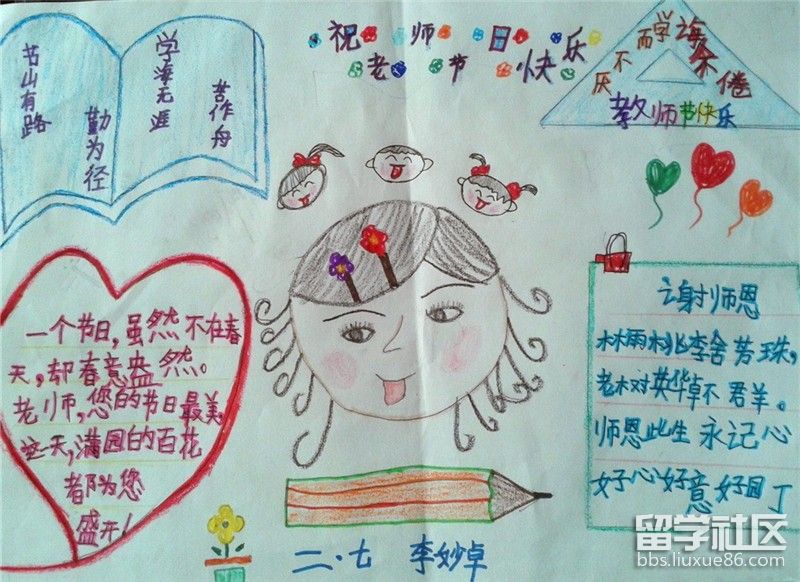 苦山有路
勤为径
学海无涯
苦作舟
祝老师节日快乐
厌不而学海不倦
教师节快乐
一个节日,虽然不在春
天,却春意盎然。
老师,您的节日最美
这天,满园的百花
都为您
盛开!
谢师恩
林雨桃李舍芳珠,
老树英华卓不群。
师恩此生永记心
好心好意好园丁
二·七 李妙卓
留学社区
bbs.liuxue86.com